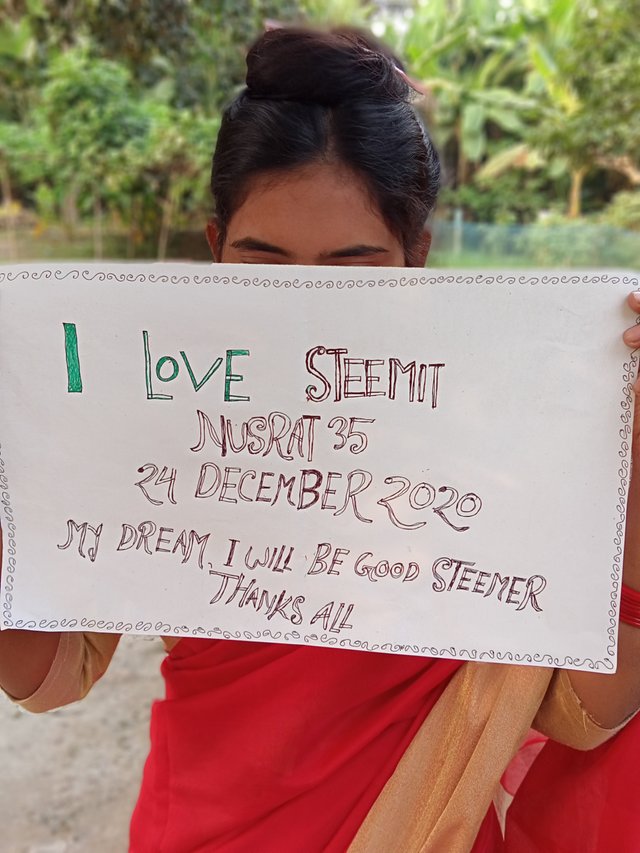 I LOVE STEEMIT
NUSRAT 35
24 DECEMBER 2020
MY DREAM, I WILL BE GOOD STEEMER
THANKS ALL